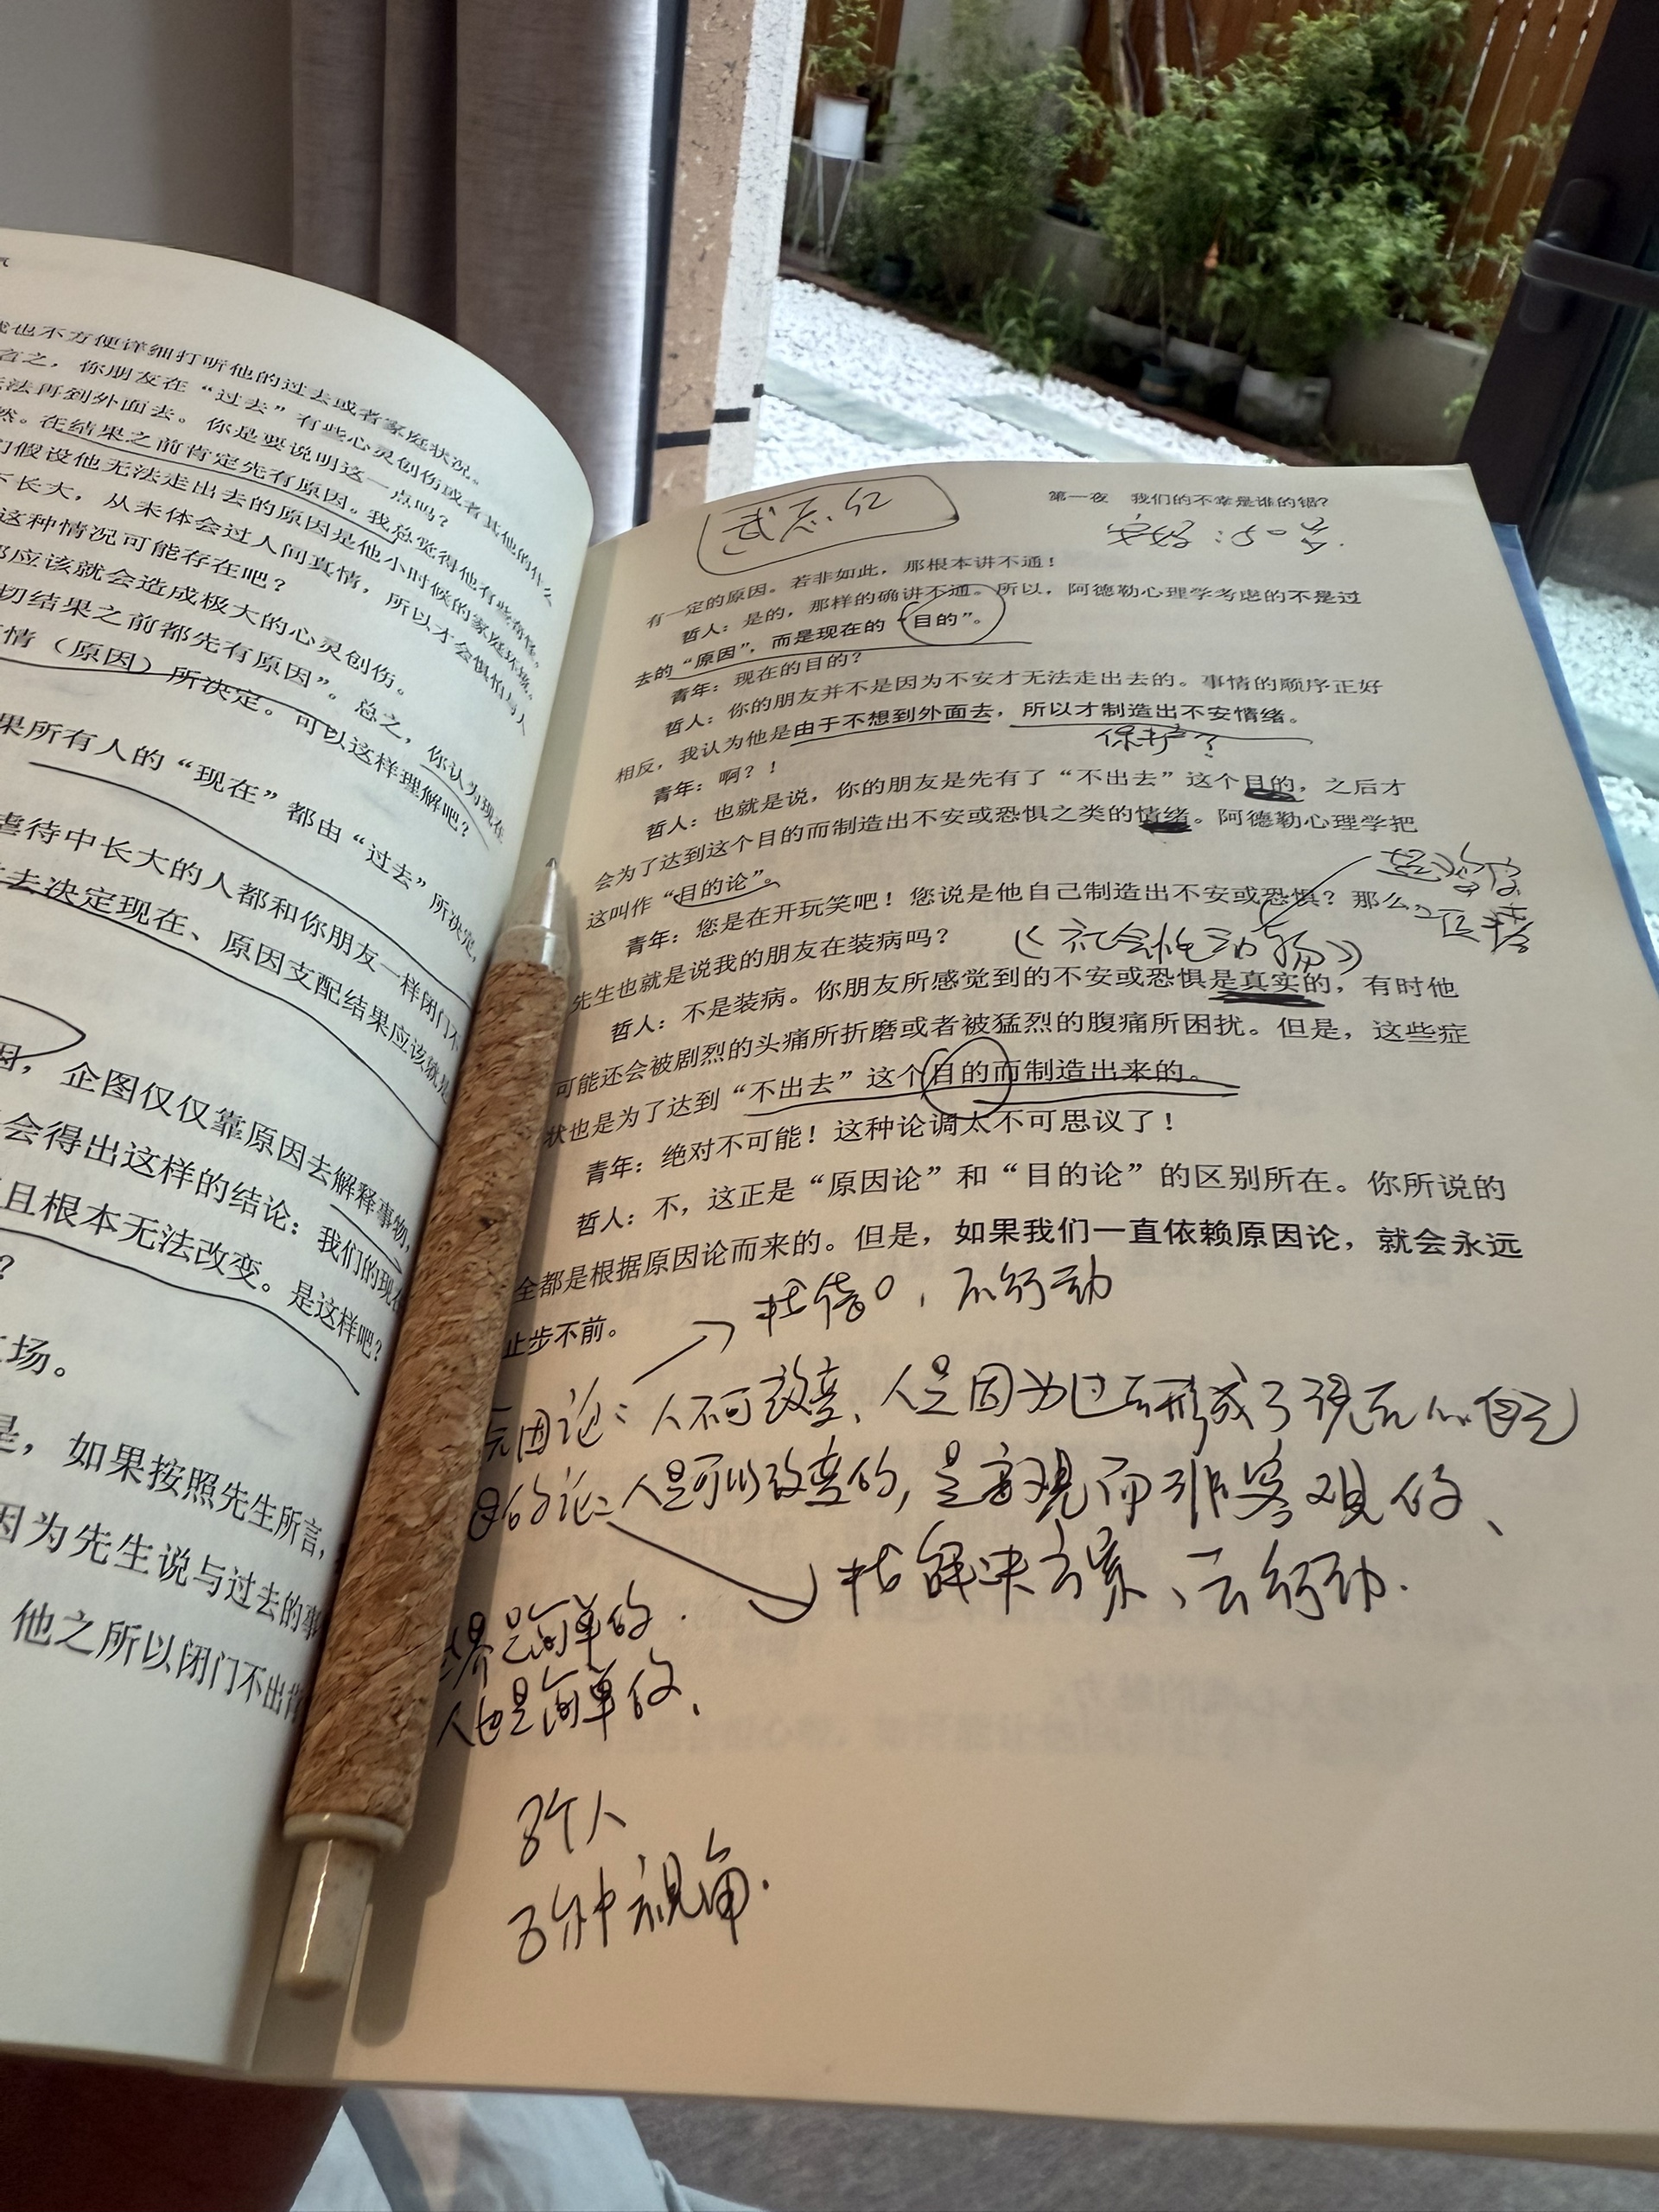 我也不方便详细打听他的过去或者家庭状况。
言之，你朋友在“过去”有些心灵创伤或者其他的什么
无法再到外面去。你是要说明这一点吗？
然。在结果之前肯定先有原因。我总觉得他有些奇怪。
们假设他无法走出去的原因是他小时候的家庭环境。
下长大，从未体会过人间真情，所以才会惧怕与人
这种情况可能存在吧？
那应该就会造成极大的心灵创伤。
切结果之前都先有原因”。总之，你认为现在
情（原因）所决定。可以这样理解吧？
果所有人的“现在”都由“过去”所决定，
虐待中长大的人都和你朋友一样闭门不
去决定现在、原因支配结果应该就是
因，企图仅仅靠原因去解释事物，
会得出这样的结论：我们的现在
且根本无法改变。是这样吧？
？
场。
是，如果按照先生所言，
因为先生说与过去的事
他之所以闭门不出肯
第一夜 我们的不幸是谁的错？
武志红
安好：50岁.
有一定的原因。若非如此，那根本讲不通！
哲人：是的，那样的确讲不通。所以，阿德勒心理学考虑的不是过
去的“原因”，而是现在的“目的”。
青年：现在的目的？
哲人：你的朋友并不是因为不安才无法走出去的。事情的顺序正好
相反，我认为他是由于不想到外面去，所以才制造出不安情绪。
保护？
青年：啊？！
哲人：也就是说，你的朋友是先有了“不出去”这个目的，之后才
会为了达到这个目的而制造出不安或恐惧之类的情绪。阿德勒心理学把
这叫作“目的论”。
青年：您是在开玩笑吧！您说是他自己制造出不安或恐惧？那么，
《社会性动物》
先生也就是说我的朋友在装病吗？
哲人：不是装病。你朋友所感觉到的不安或恐惧是真实的，有时他
可能还会被剧烈的头痛所折磨或者被猛烈的腹痛所困扰。但是，这些症
状也是为了达到“不出去”这个目的而制造出来的。
青年：绝对不可能！这种论调太不可思议了！
哲人：不，这正是“原因论”和“目的论”的区别所在。你所说的
全都是根据原因论而来的。但是，如果我们一直依赖原因论，就会永远
止步不前。
找借口，不行动
原因论：人不可改变、人是因为过去形成了现在的自己
目的论：人是可以改变的，是客观而非客观的、
找解决方案、去行动.
世界是简单的.
人也是简单的、
3个人
3种视角.